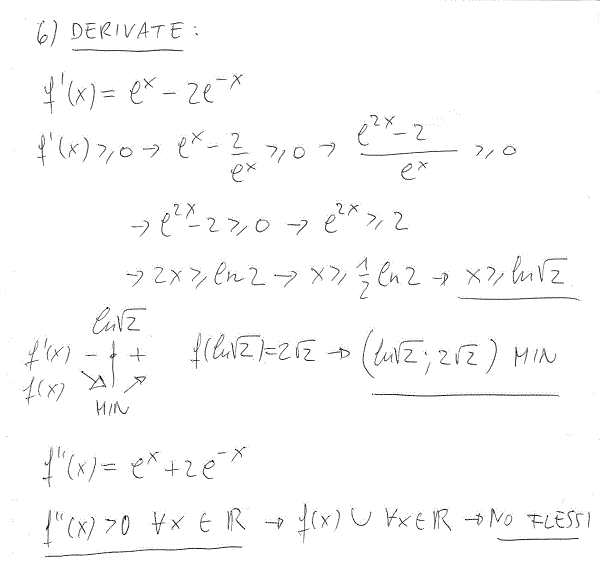 6) DERIVATE:
f'(x) = e^x - 2e^-x
f'(x) ≥ 0 → e^x - 2/e^x ≥ 0 → (e^2x - 2)/e^x ≥ 0
→ e^2x - 2 ≥ 0 → e^2x ≥ 2
→ 2x ≥ ln 2 → x ≥ 1/2 ln 2 → x ≥ ln√2
ln√2
f'(x) - + f(ln√2) = 2√2 → (ln√2; 2√2) MIN
f(x) ↘ ↗
MIN
f''(x) = e^x + 2e^-x
f''(x) > 0 ∀x ∈ ℝ → f(x) ∪ ∀x ∈ ℝ → NO FLESSI